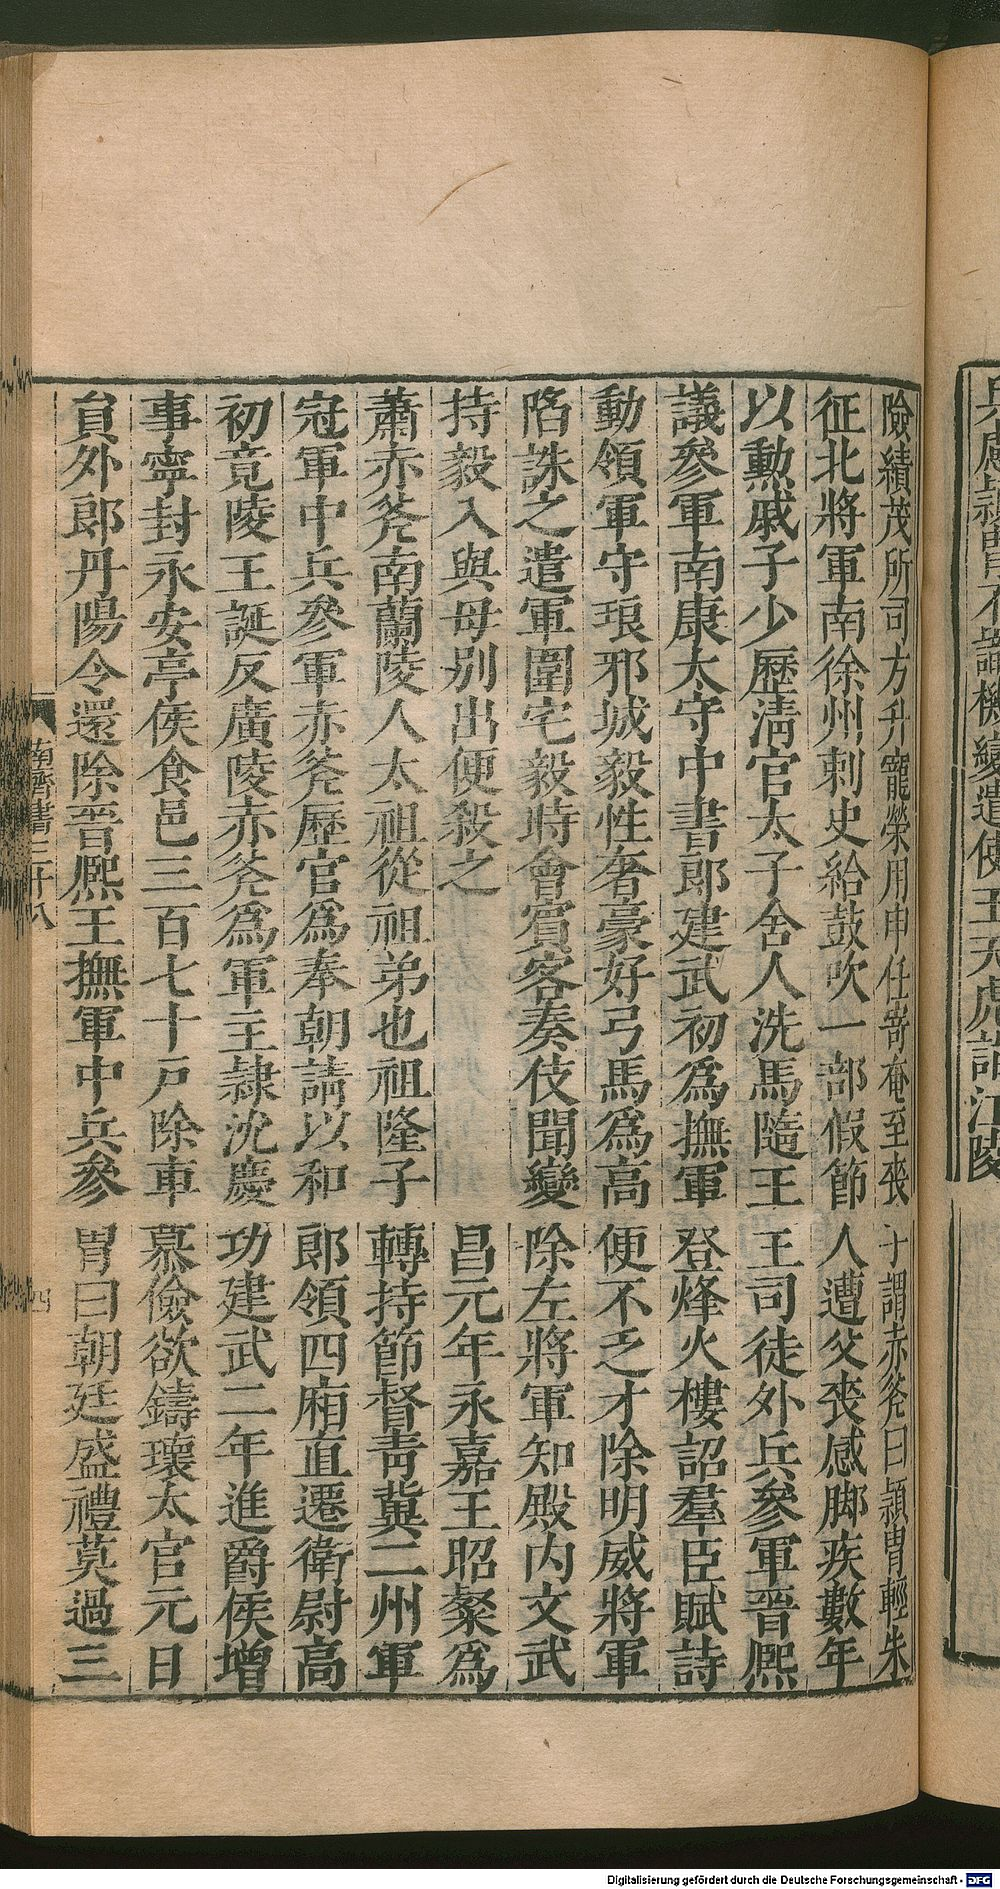 險績茂所司方升寵榮用申任寄奄至喪
征北將軍南徐州刺史給鼓吹一部假節
以勳戚子少歷淸官太子舍人洗馬隨王
議參軍南康太守中書郎建武初爲撫軍
動領軍守琅邪城毅性奢豪好弓馬爲高
陷誅之遣軍圍宅毅時會賓客奏伎聞變
持毅入與母別出便殺之
蕭赤斧南蘭陵人太祖從祖弟也祖隆子
冠軍中兵參軍赤斧歷官爲奉朝請以和
初竟陵王誕反廣陵赤斧爲軍主隷沈慶
事寧封永安亭侯食邑三百七十戸除車
貟外郎丹陽令還除晉熈王撫軍中兵參
于謂赤斧曰頴胄輕朱
人遭父喪感脚疾數年
王司徒外兵參軍晉熈
登烽火樓詔羣臣賦詩
便不乏才除明威將軍
除左將軍知殿内文武
昌元年永嘉王昭粲爲
轉持節督靑冀二州軍
郎領四廂直遷衛尉高
功建武二年進爵侯增
慕儉欲鑄壞太官元日
胄曰朝廷盛禮莫過三
南齊書三十八
四
Digitalisierung gefördert durch die Deutsche Forschungsgemeinschaft - DFG